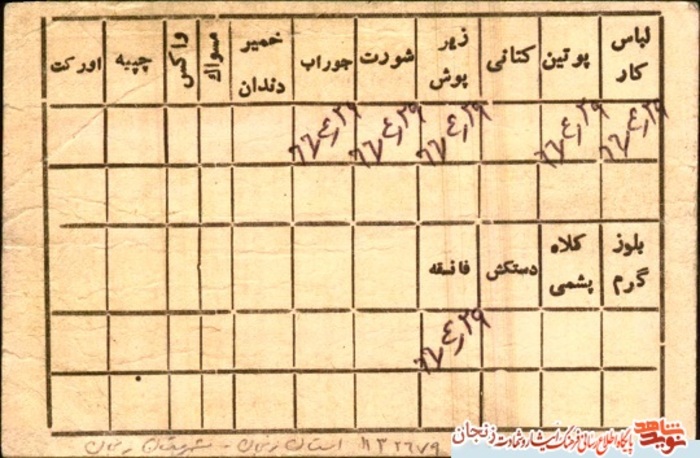 لباس کار	پوتین	کتانی	زیر پوش	شورت	جوراب	خمیر دندان	مسواک	واکس	چپیه	اورکت
۶۶٫۴٫۲۹	۶۶٫۴٫۲۹	۶۶٫۴٫۲۹	۶۶٫۴٫۲۹	۶۶٫۴٫۲۹
بلوز گرم	کلاه پشمی	دستکش	فانسقه
۶۶٫۴٫۲۹
استان زنجان - شهرستان زنجان
نوید شاهد پایگاه اطلاع رسانی فرهنگ ایثار و شهادت زنجان